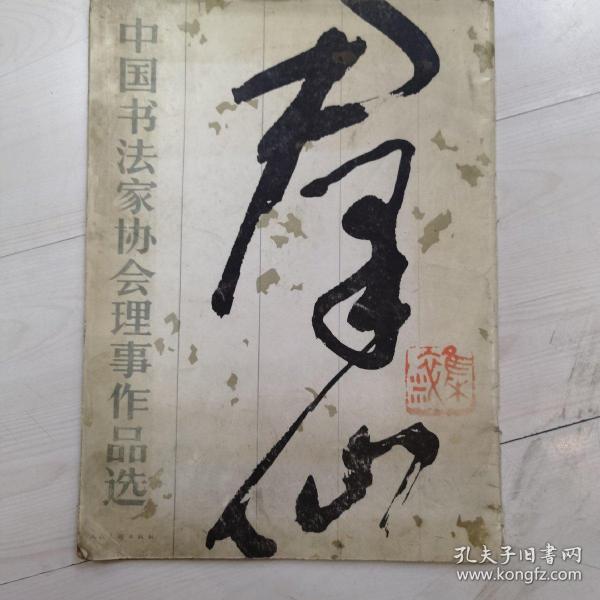 中国书法家协会理事作品选
群仙
孔夫子旧书网
www.kongfz.com